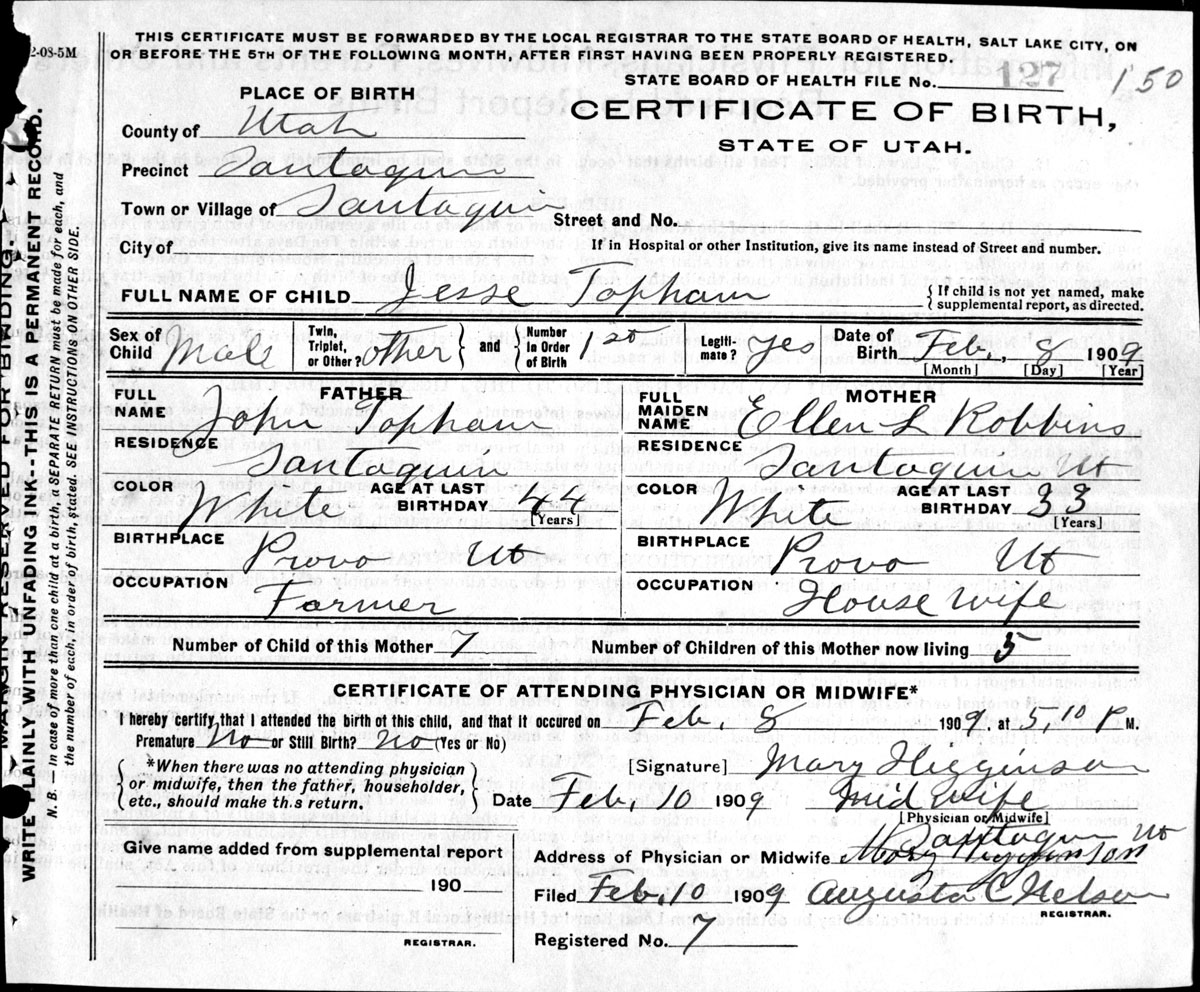 2-08-5M
THIS CERTIFICATE MUST BE FORWARDED BY THE LOCAL REGISTRAR TO THE STATE BOARD OF HEALTH, SALT LAKE CITY, ON
OR BEFORE THE 5TH OF THE FOLLOWING MONTH, AFTER FIRST HAVING BEEN PROPERLY REGISTERED.
STATE BOARD OF HEALTH FILE No. 127 150
PLACE OF BIRTH
CERTIFICATE OF BIRTH,
STATE OF UTAH.
County of Utah
Precinct Santaquin
Town or Village of Santaquin Street and No.
City of If in Hospital or other Institution, give its name instead of Street and number.
FULL NAME OF CHILD Jesse Topham { If child is not yet named, make supplemental report, as directed.
Sex of Child Male Twin, Triplet, or Other? other } and { Number in Order of Birth 1st Legiti-mate? yes Date of Birth Feb., 8 1909
[Month] [Day] [Year]
FATHER MOTHER
FULL NAME John Topham FULL MAIDEN NAME Ellen L Robbins
RESIDENCE Santaquin RESIDENCE Santaquin Ut
COLOR White AGE AT LAST BIRTHDAY 44 [Years] COLOR White AGE AT LAST BIRTHDAY 33 [Years]
BIRTHPLACE Provo Ut BIRTHPLACE Provo Ut
OCCUPATION Farmer OCCUPATION House Wife
Number of Child of this Mother 7 Number of Children of this Mother now living 5
CERTIFICATE OF ATTENDING PHYSICIAN OR MIDWIFE*
I hereby certify that I attended the birth of this child, and that it occured on Feb, 8 1909, at 5,10 P M.
Premature No or Still Birth? No (Yes or No)
{ *When there was no attending physician or midwife, then the father, householder, etc., should make this return. }
[Signature] Mary Higginson
Date Feb, 10 1909 Mid Wife
[Physician or Midwife]
Santaquin Ut
Address of Physician or Midwife Mary Higginson
Give name added from supplemental report
190
REGISTRAR.
Filed Feb, 10 1909 Augusta C Nelson
REGISTRAR.
Registered No. 7
MARGIN RESERVED FOR BINDING.
WRITE PLAINLY WITH UNFADING INK--THIS IS A PERMANENT RECORD.
N. B. — in case of more than one child at a birth, a SEPARATE RETURN must be made for each, and
the number of each, in order of birth, stated. SEE INSTRUCTIONS ON OTHER SIDE.